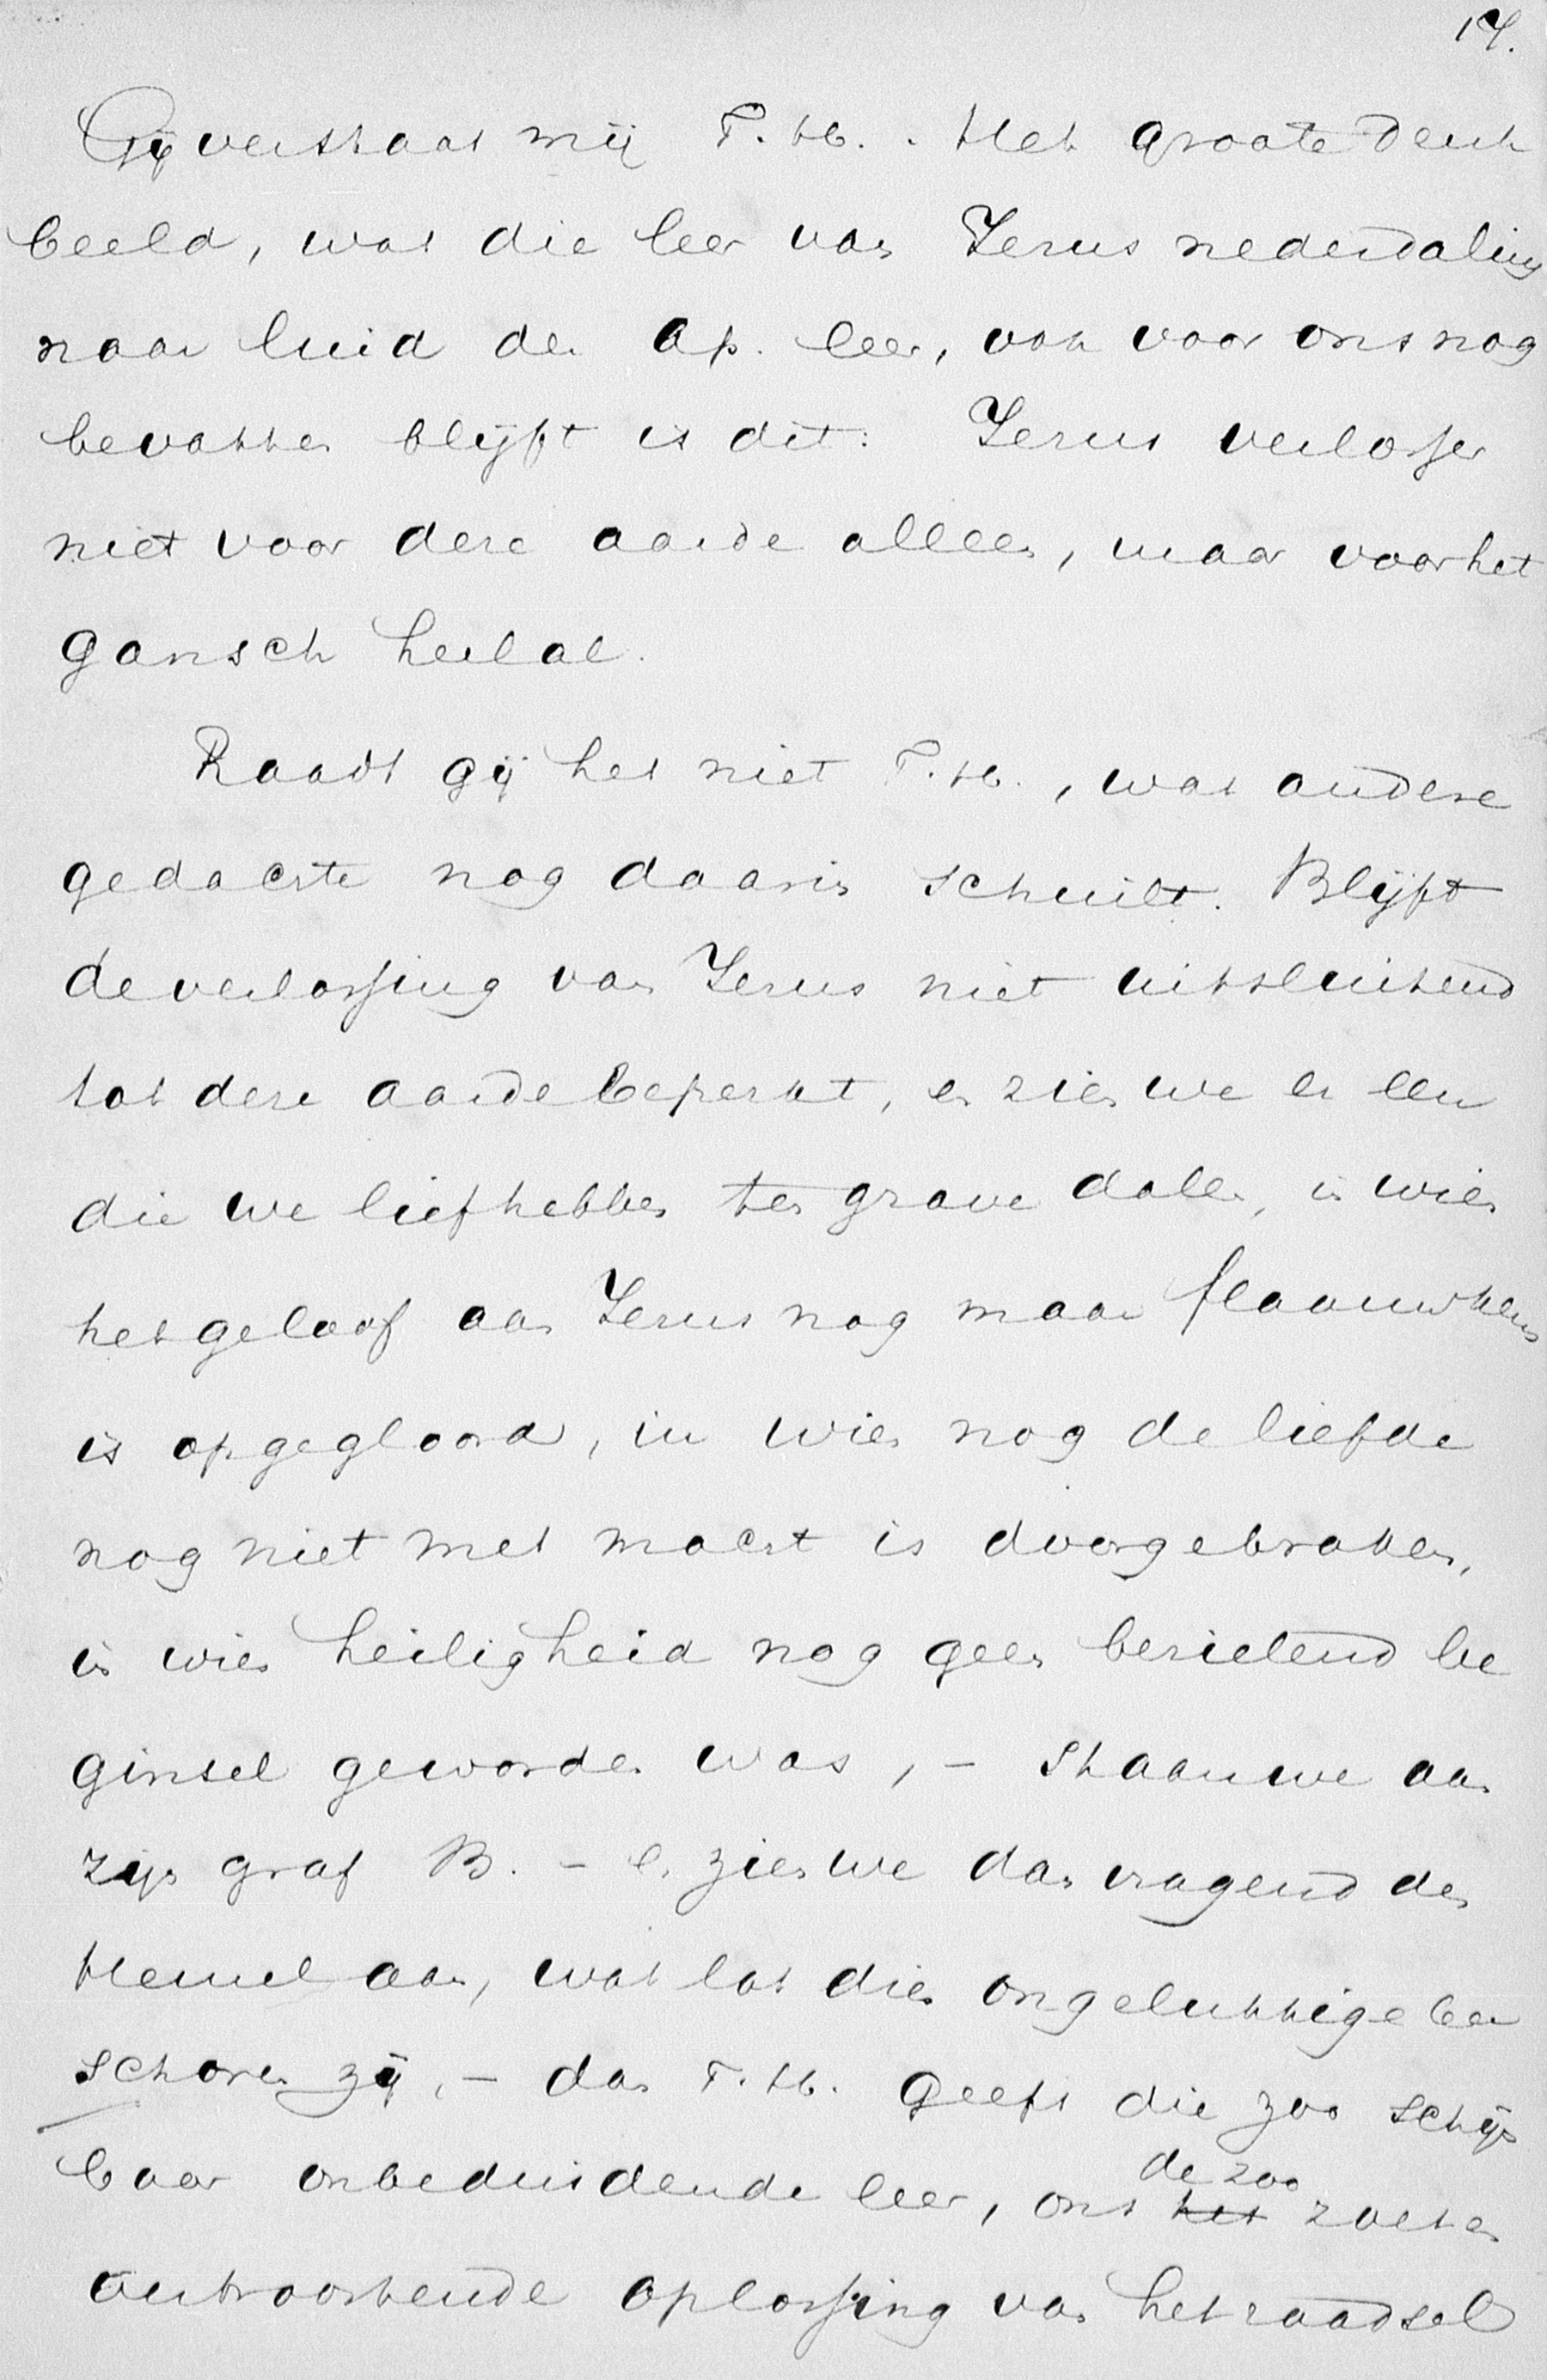 17.
Gij verstaat mij T. H. . Het groote denk
beeld, wat die leer van Jezus nederdaling
naar luid der Ap. leer, ook voor ons nog
bevatten blijft is dit: Jezus verlosser
niet voor deze aarde alleen, maar voor het
gansch heelal.
Raadt gij het niet T. H., wat andere
gedachte nog daarin schuilt. Blijft
de verlossing van Jezus niet uitsluitend
tot deze aarde beperkt, en zien we er een
die we liefhebben ten grave dalen, in wien
het geloof aan Jezus nog maar flaauwkens
is opgegloord, in wien nog de liefde
nog niet met macht is doorgebroken,
in wien heiligheid nog geen bezielend be
ginsel geworden was, – staan we aan
zijn graf B. – en zien we dan vragend den
Hemel aan, wat lot dien ongelukkige be
schoren zij, – dan T. H. geeft die zoo schijn
baar onbeduidende leer, ons het de zoo zoet en
vertroostende oplossing van het raadsel